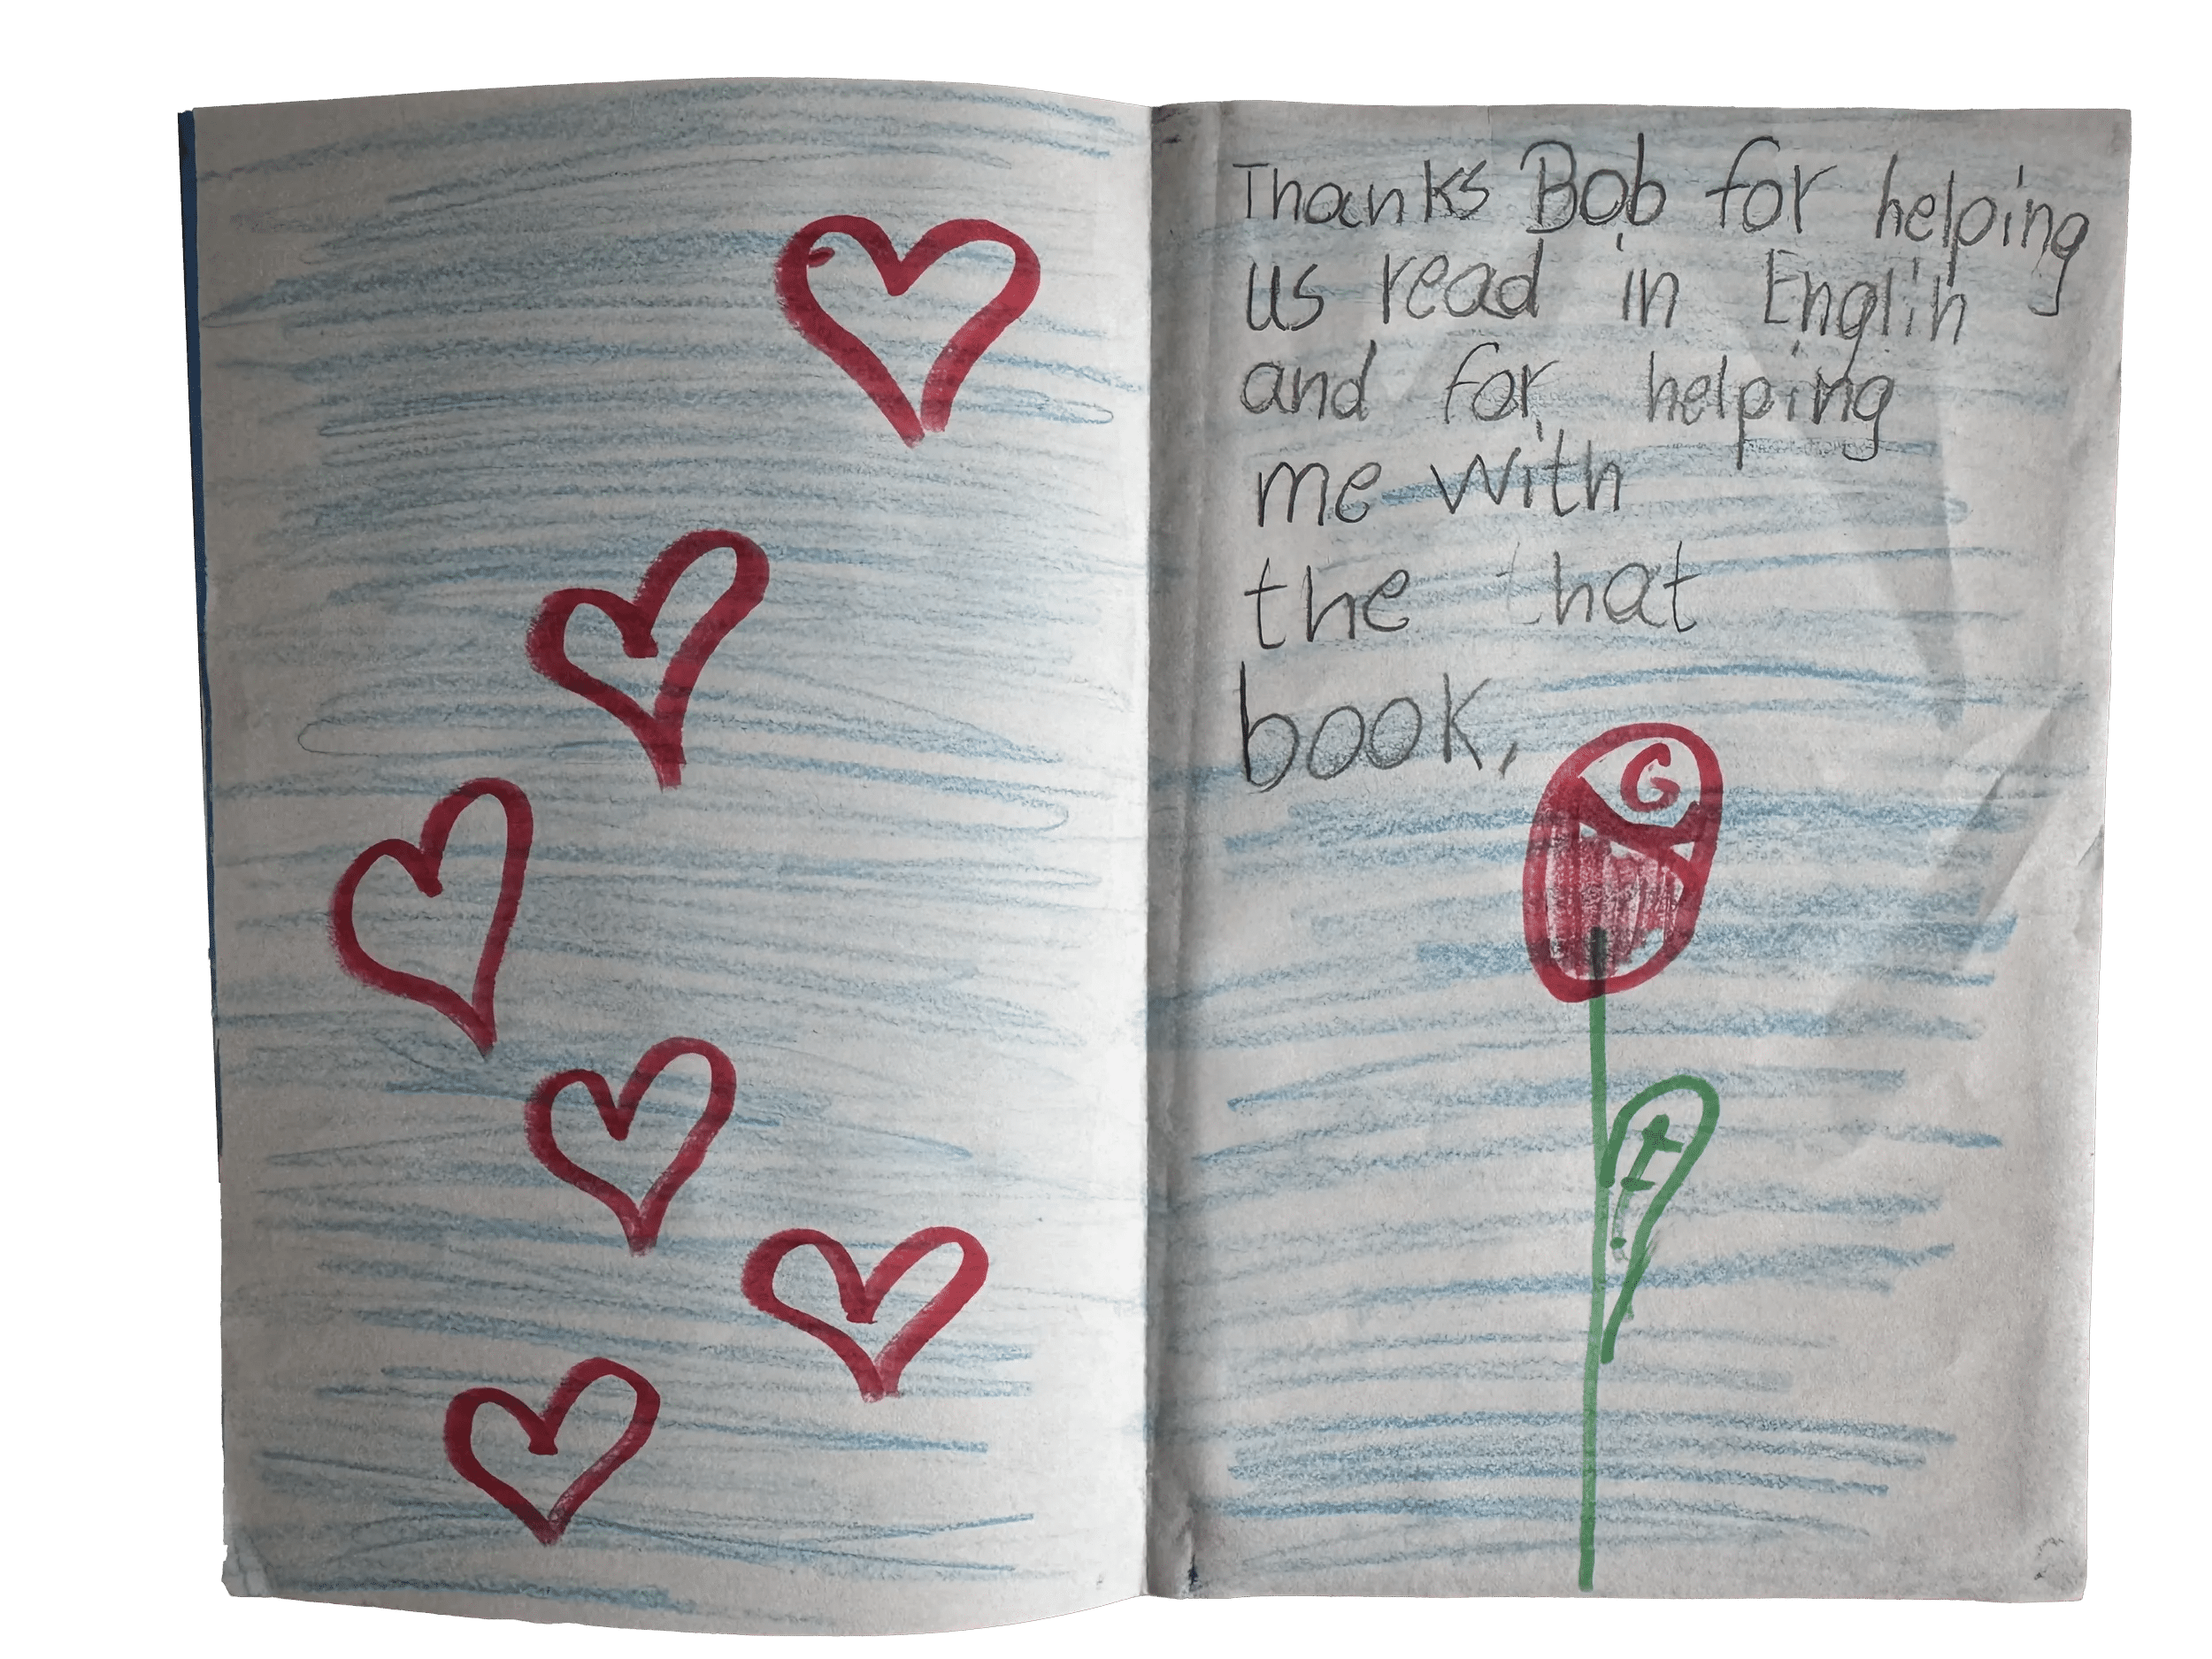 Thanks Bob for helping
us read in Englih
and for helping
me with
the that
book,